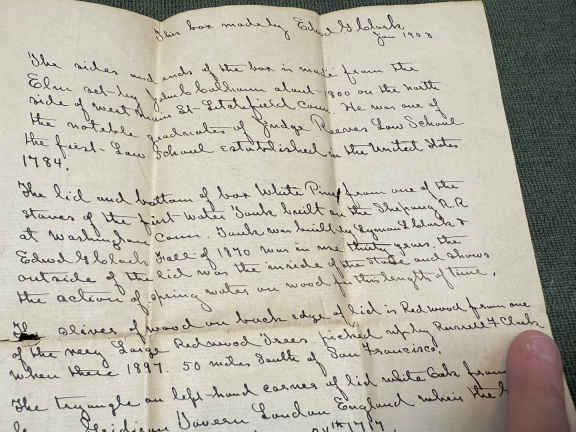 This box made by Edwd G Clark
Jan 1908
The sides and ends of the box is made from the
Elm set by John C Calhoun about 1800 on the North
side of West Main St Litchfield Conn. He was one of
the notable graduates of Judge Reeves Law School
the first Law School established in the United States
1784.
The lid and bottom of box White Pine from one of the
staves of the first Water Tank built on the Shepaug R.R
at Washington Conn. Tank was built by Lyman J Clark &
Edwd G Clark Fall of 1870 was in use thirty years. the
outside of the lid was the inside of the stave and shows
the action of spring water on wood for this length of time.
The slives of wood on back edge of lid is Redwood from one
of the very Large Redwood Trees picked up by Russell F Clark
when there 1897. 50 miles South of San Francisco.
The tryangle on left hand corner of lid white Oak from
Tavern London England when the
17